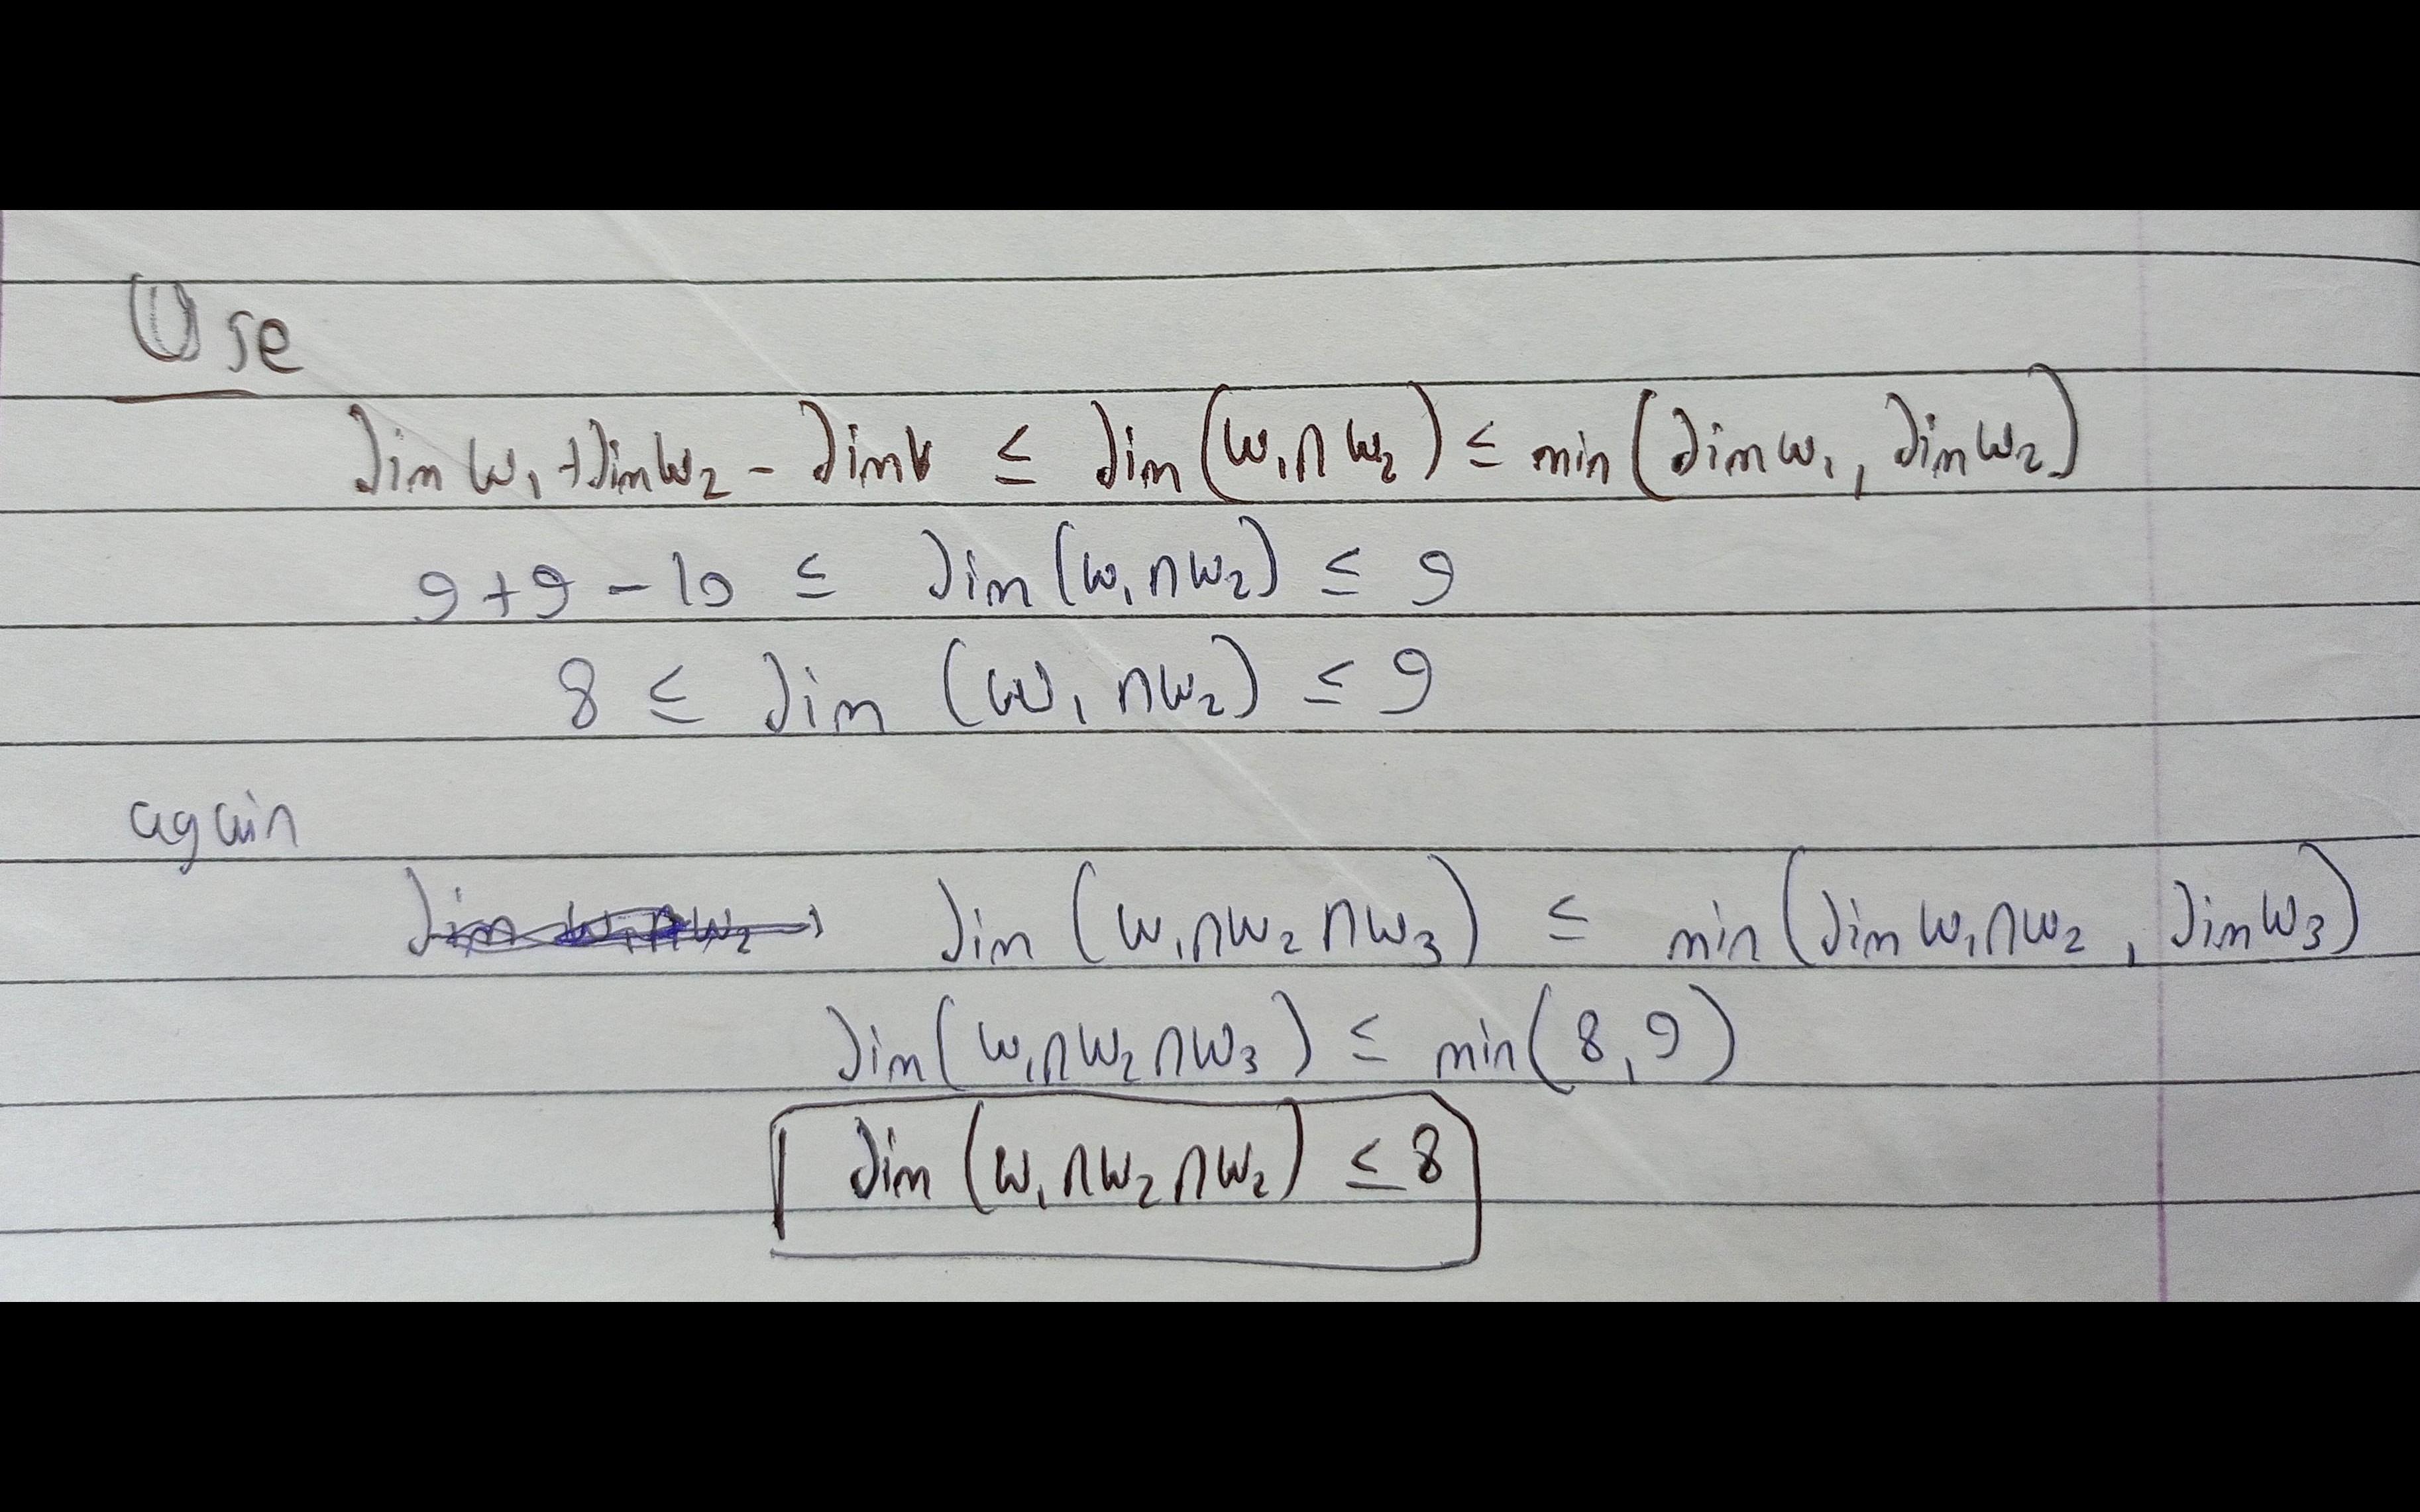 Use
dim W₁ + dim W₂ - dim V ≤ dim (W₁ ∩ W₂) ≤ min (dim W₁, dim W₂)
9+9-10 ≤ dim (W₁ ∩ W₂) ≤ 9
8 ≤ dim (W₁ ∩ W₂) ≤ 9
again
dim (W₁ ∩ W₂ ∩ W₃) ≤ min (dim W₁ ∩ W₂, dim W₃)
dim (W₁ ∩ W₂ ∩ W₃) ≤ min (8, 9)
dim (W₁ ∩ W₂ ∩ W₂) ≤ 8